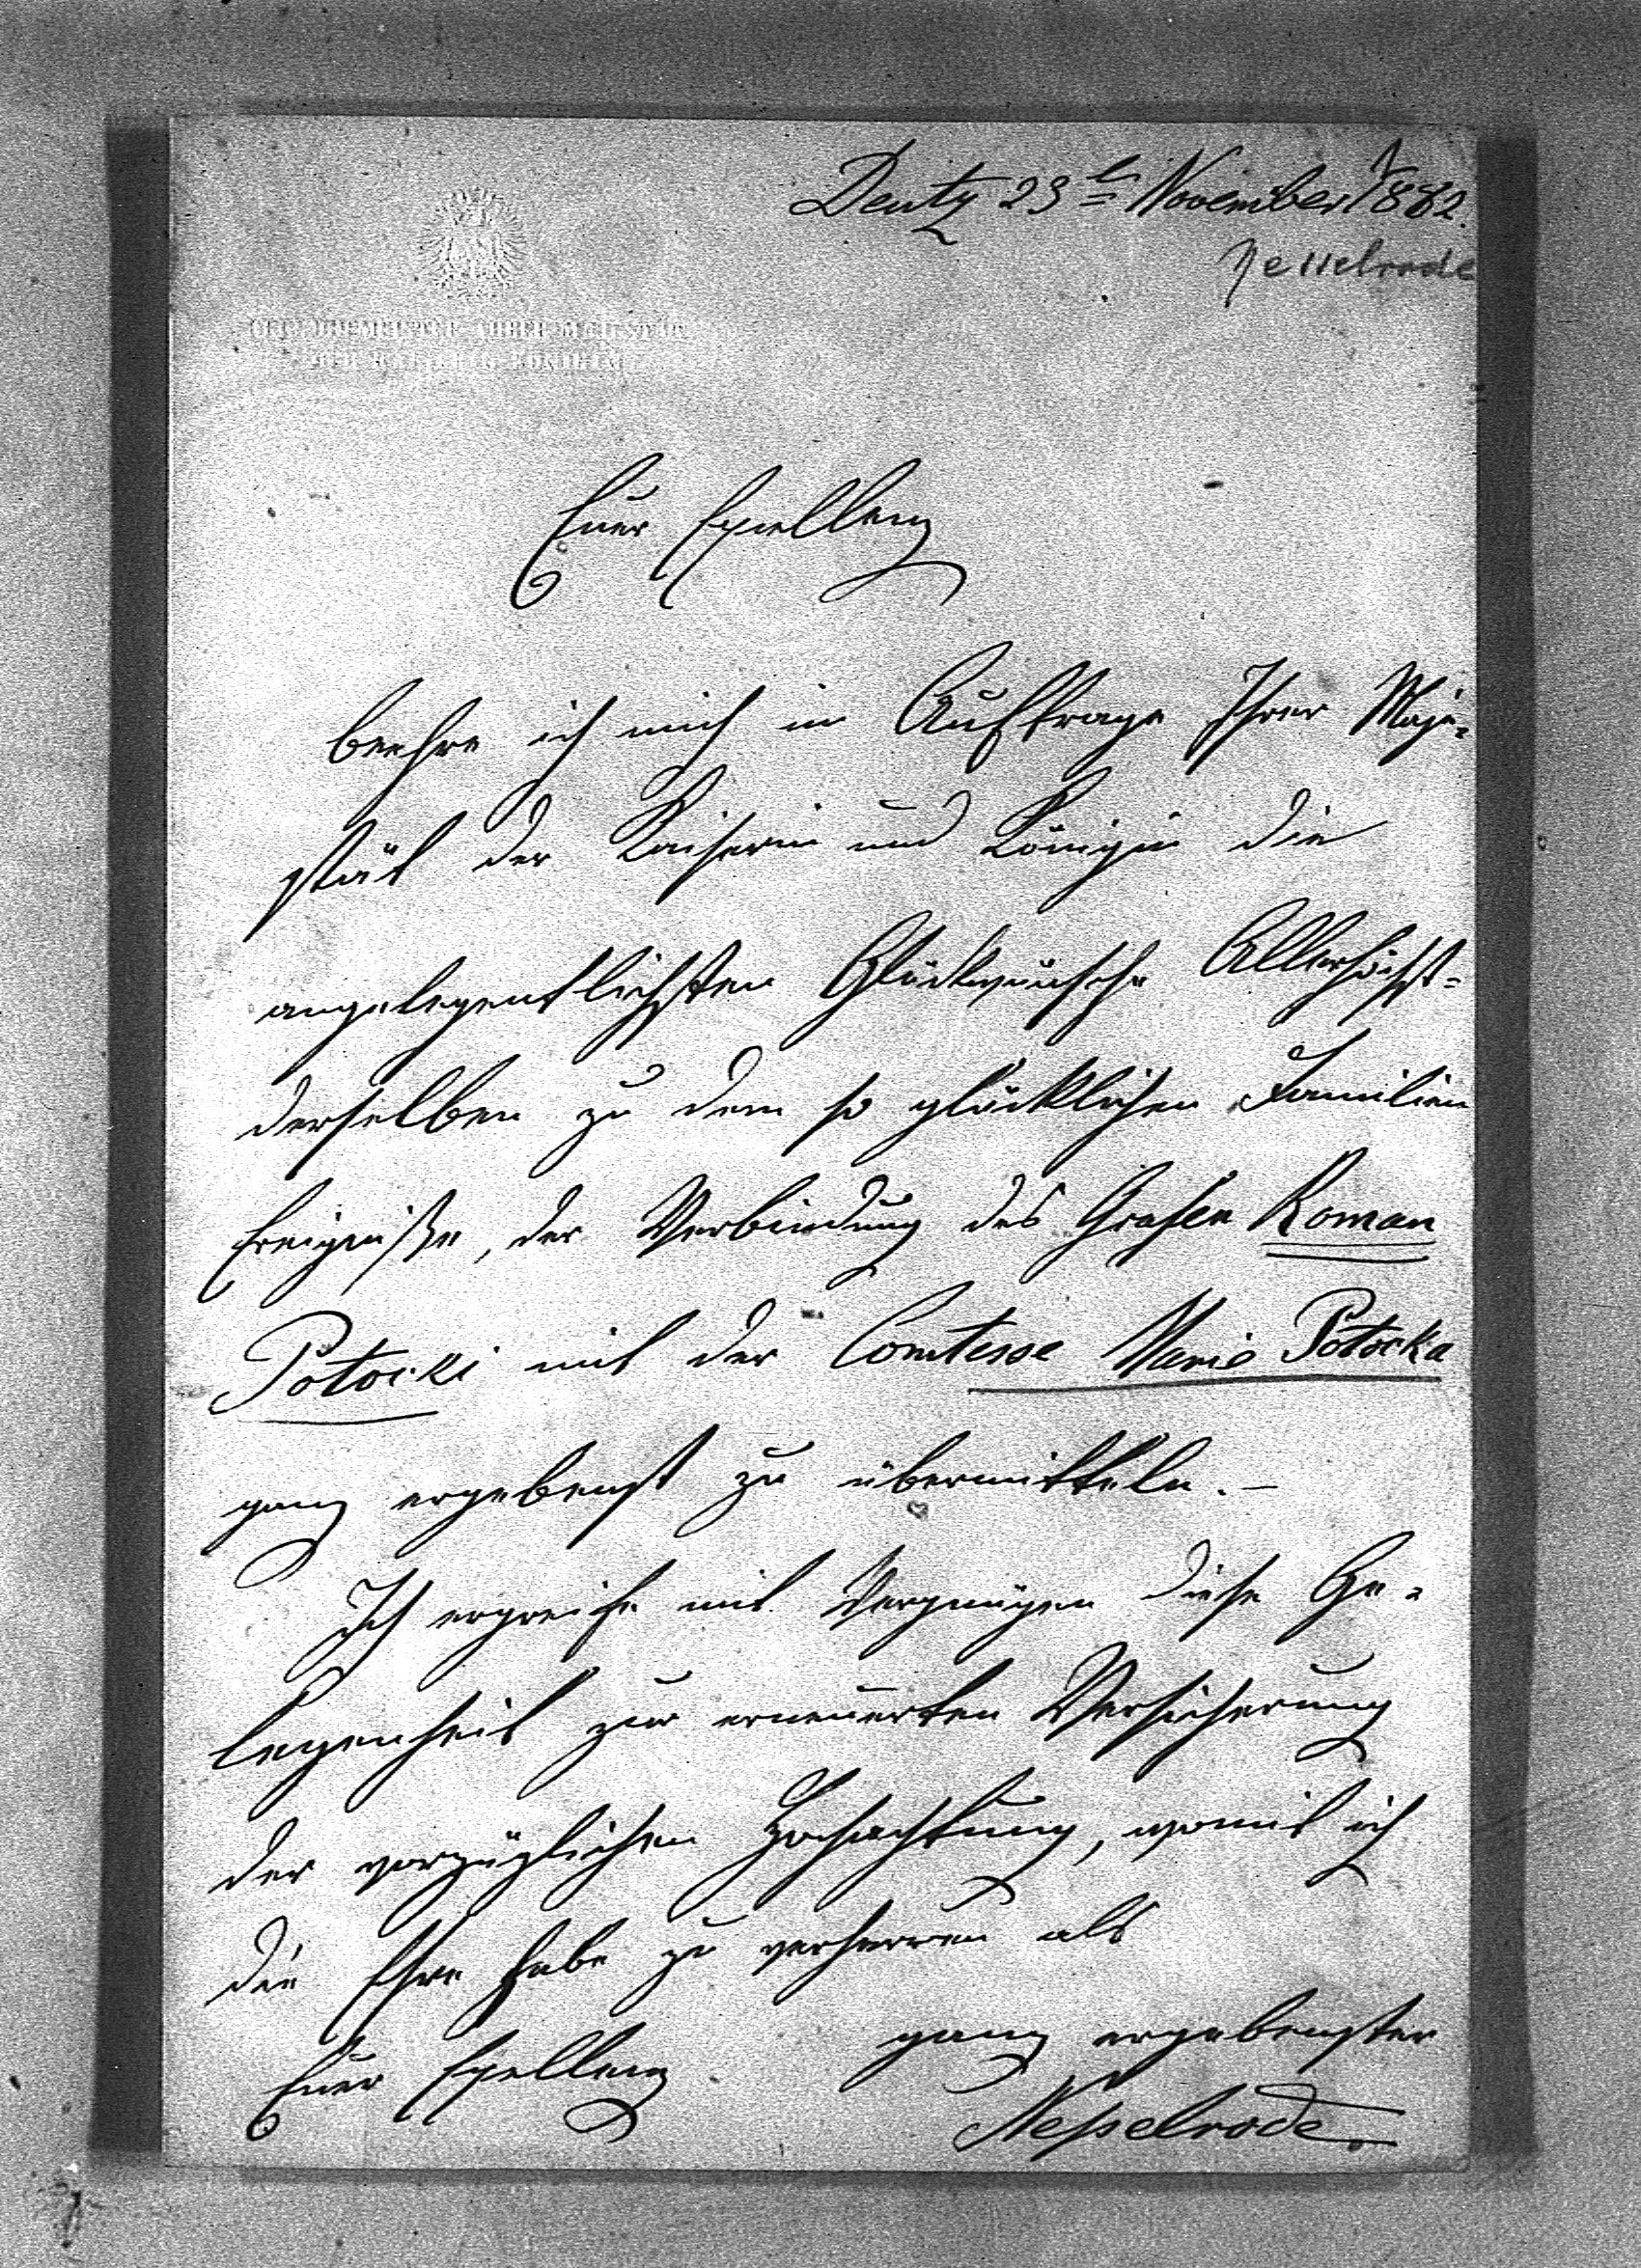 Deutz 23t November 1882.
Nesselrode
OBERHOFMEISTER IHRER MAJESTÄT
DER KAISERIN-KÖNIGIN
Euer Exzellenz
beehre ich mich im Auftrage Ihrer Maje-
stät der Kaiserin und Königin die
angelegentlichsten Glückwünsche Allerhöchst-
derselben zu dem so glücklichen Familien
Ereigniße, der Verbindung des Grafen Roman
Potocki mit der Comtesse Marie Potocka
ganz ergebenst zu übermitteln. –
Ich ergreife mit Vergnügen diese Ge-
legenheit zur erneuerten Versicherung
der vorzüglichen Hochachtung, womit ich
die Ehre habe zu verharren als
Euer Exzellenz ganz ergebenster
Neßelrode.